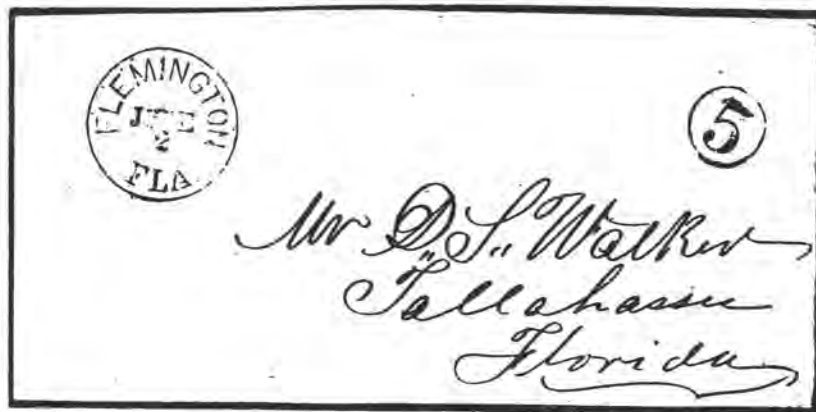 FLEMINGTON
JUNE
2
FLA
5
Mr D.S. Walker
Tallahassee
Florida